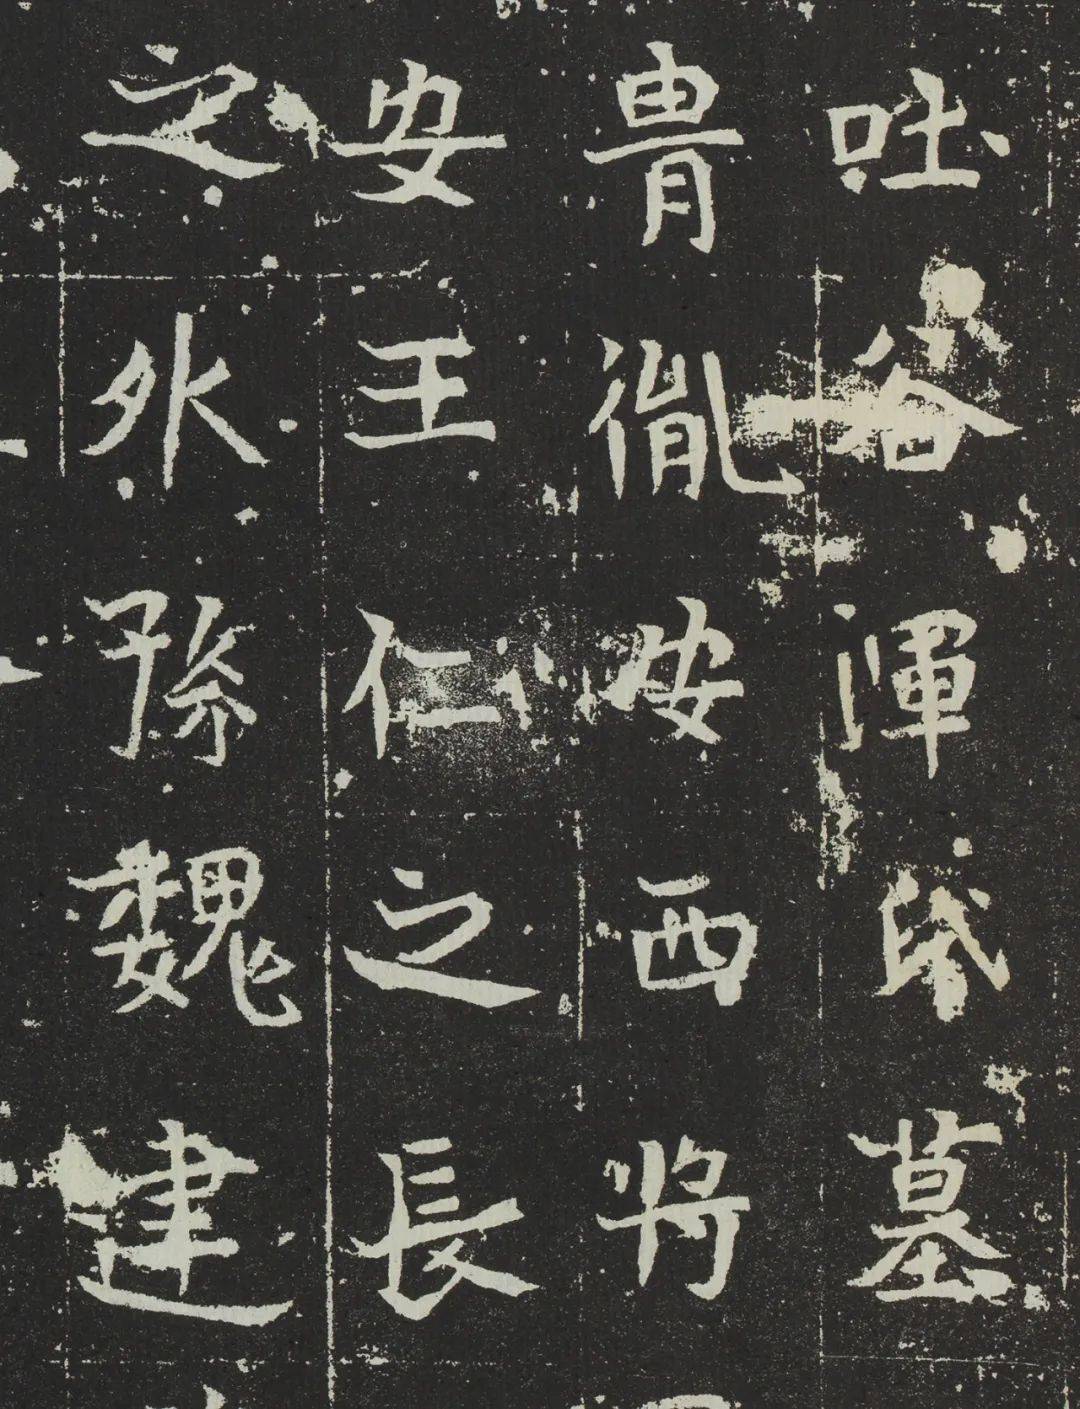 吐谷渾墓
胄胤安西将
安王仁之長
之外孫魏建